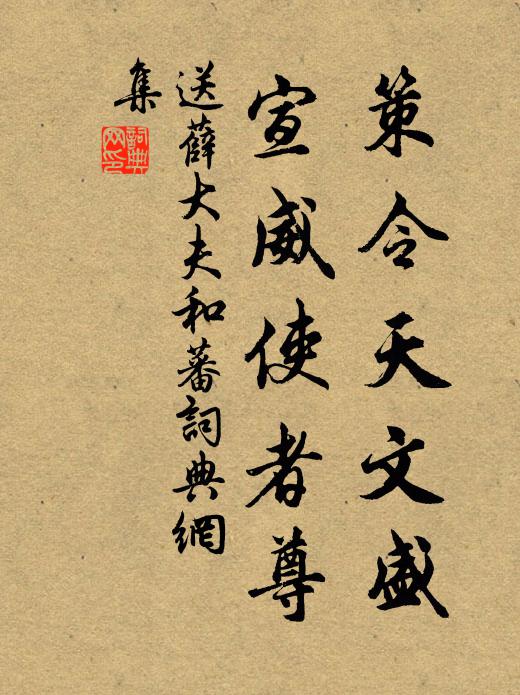 策令天文盛
宣威使者尊
送薛大夫和蕃詞典網
集
詞典網印